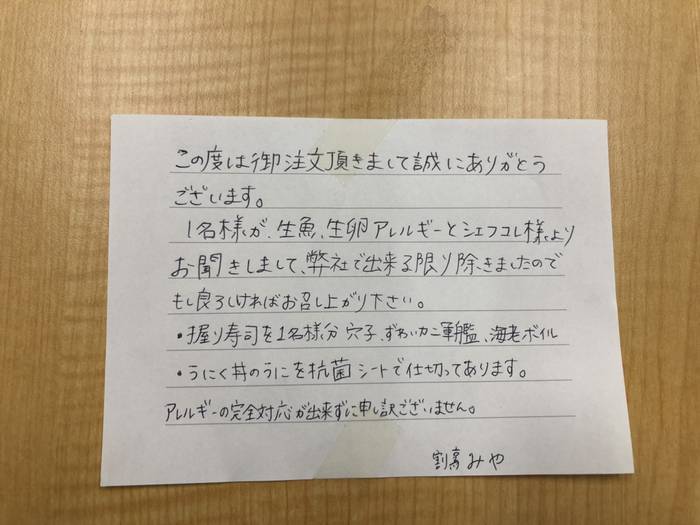 この度は御注文頂きまして誠にありがとう
ございます。
1名様が、生魚、生卵アレルギーとシェフコレ様より
お聞きしまして、弊社で出来る限り除きましたので
もし良ろしければお召し上がり下さい。
・握り寿司を1名様分 穴子、ずわいカニ軍艦、海老ボイル
・うにく丼のうにを抗菌シートで仕切ってあります。
アレルギーの完全対応が出来ずに申し訳ございません。
割烹みや